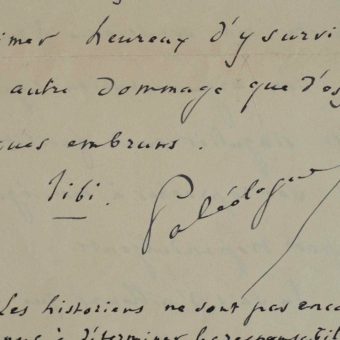 imer heureux d'y survi
autre dommage que d'es
ques embruns.
Tibi.
Paléologue
Les historiens ne sont pas enco
à déterminer la responsabil